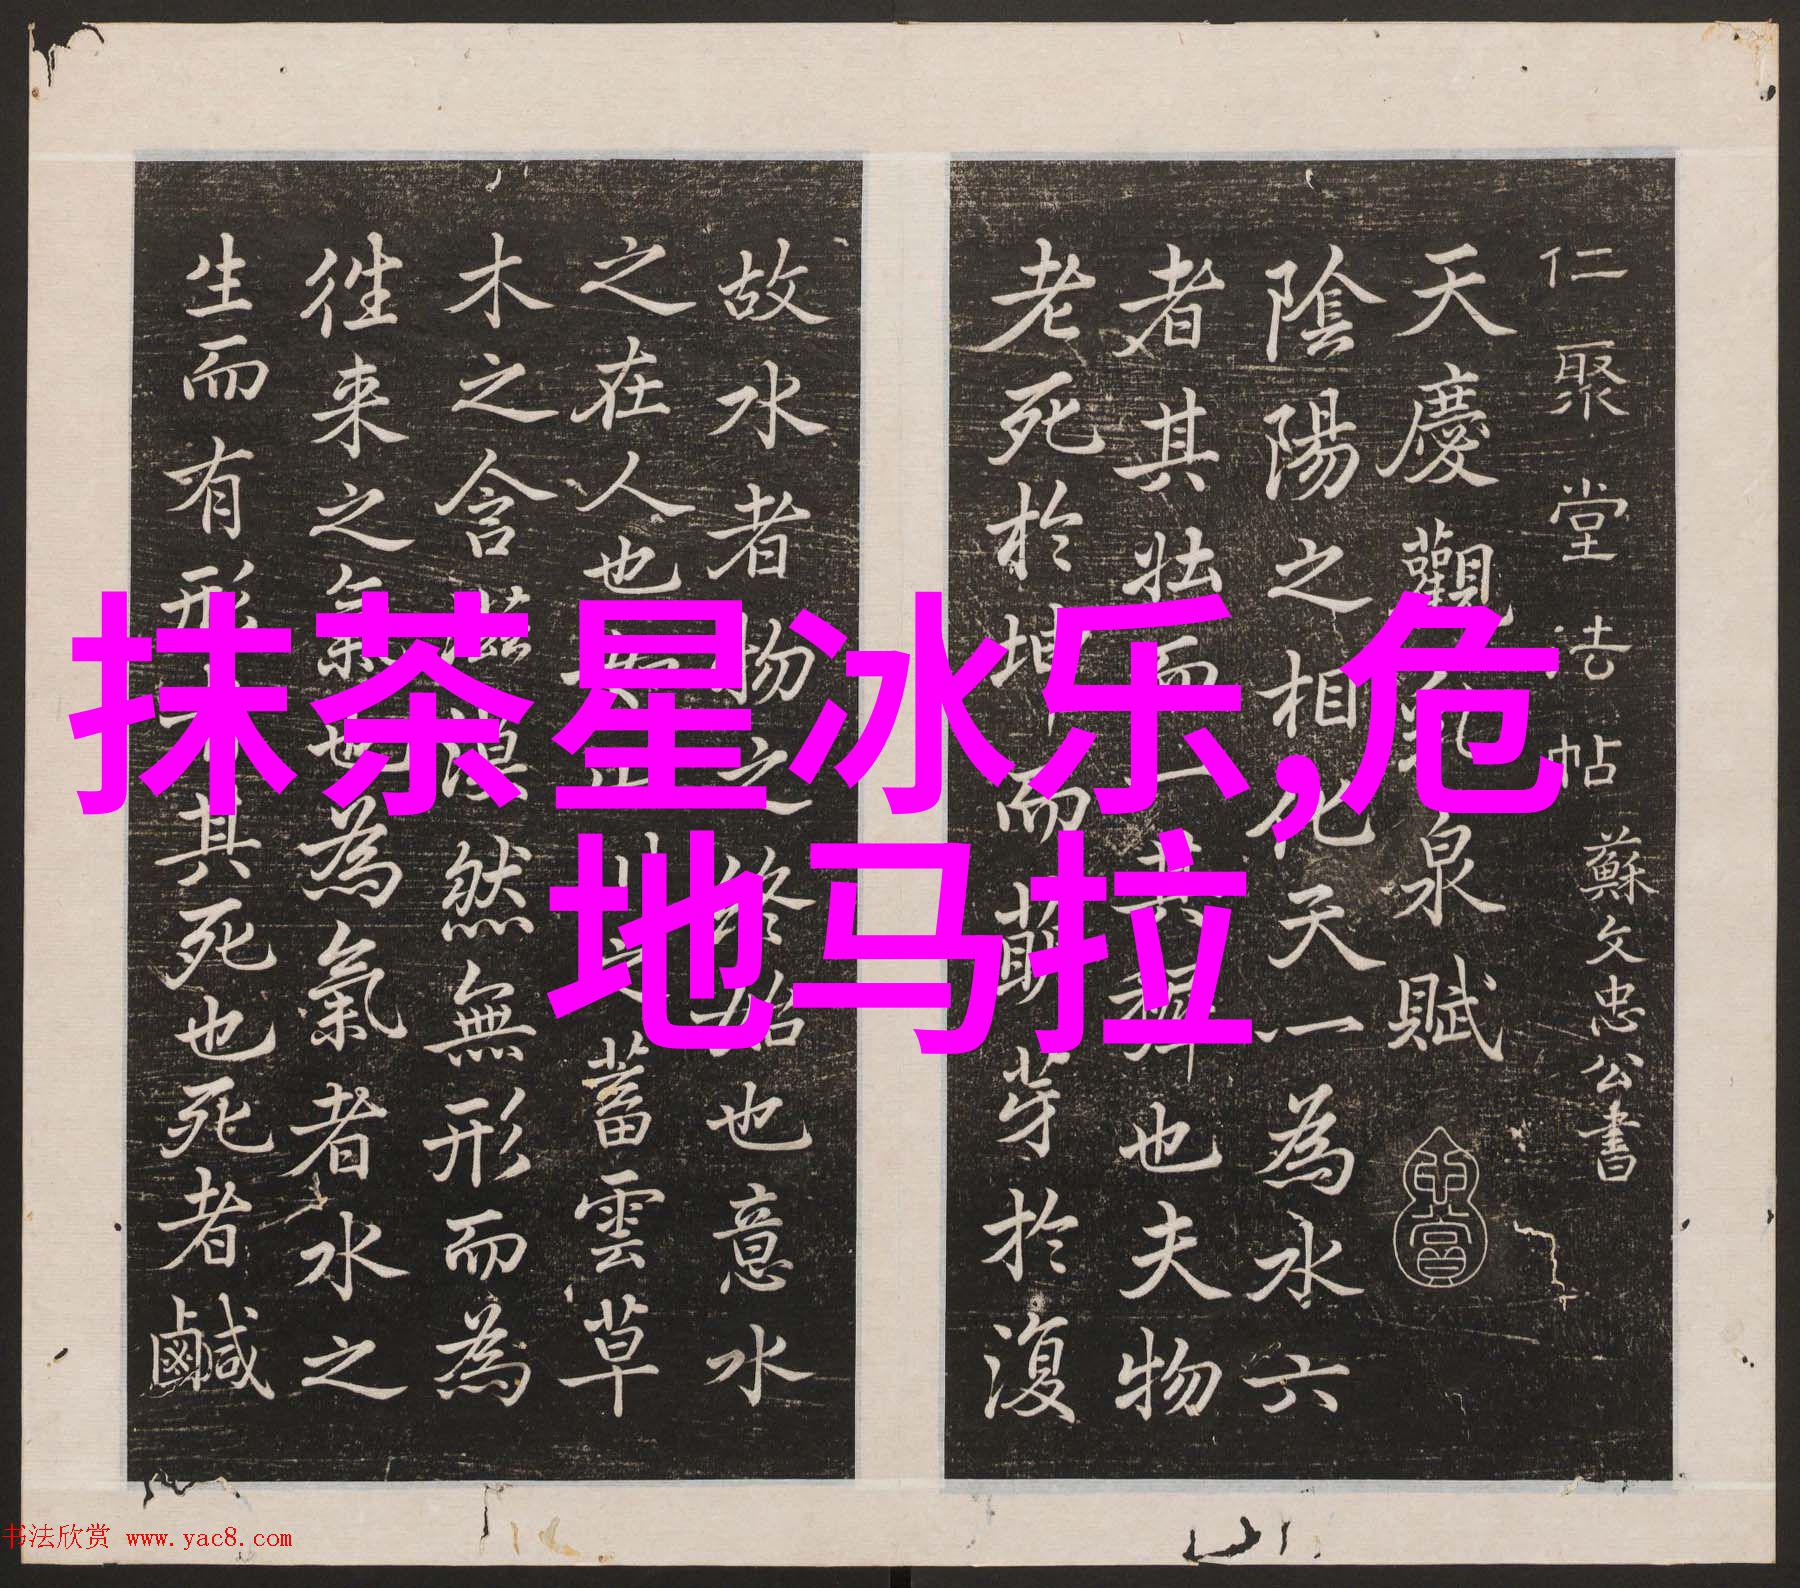 抹茶星冰乐,危
地马拉
仁聚堂法帖 蘇文忠公書
天慶觀乳泉賦
陰陽之相化天一為水六
者其壯而一其穉也夫物
老死於坤而萌芽於復
故水者物之終始也意水
之在人也如山川之蓄雲草
木之含滋漠然無形而為
徃来之氣也為氣者水之
生而有形其死也死者鹹
书法欣赏 www.yac8.com